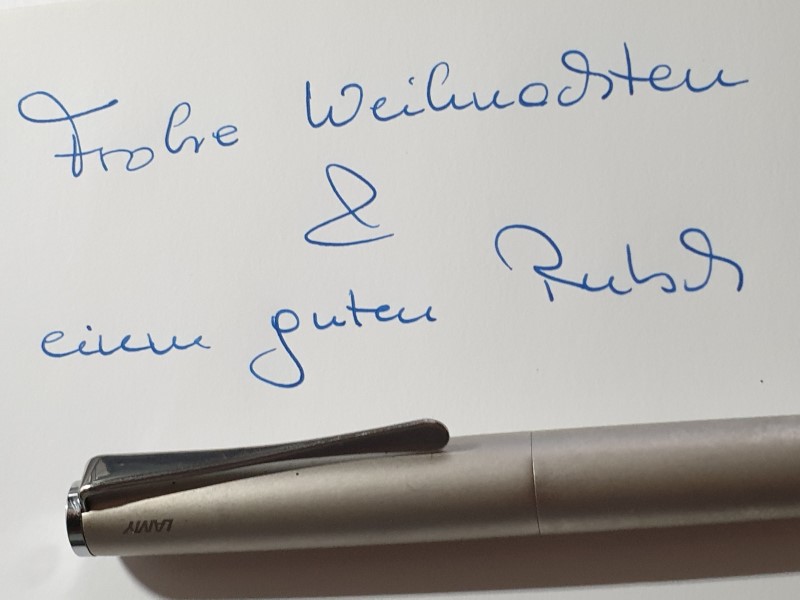 Frohe Weihnachten
&
einen guten Rutsch
LAMY